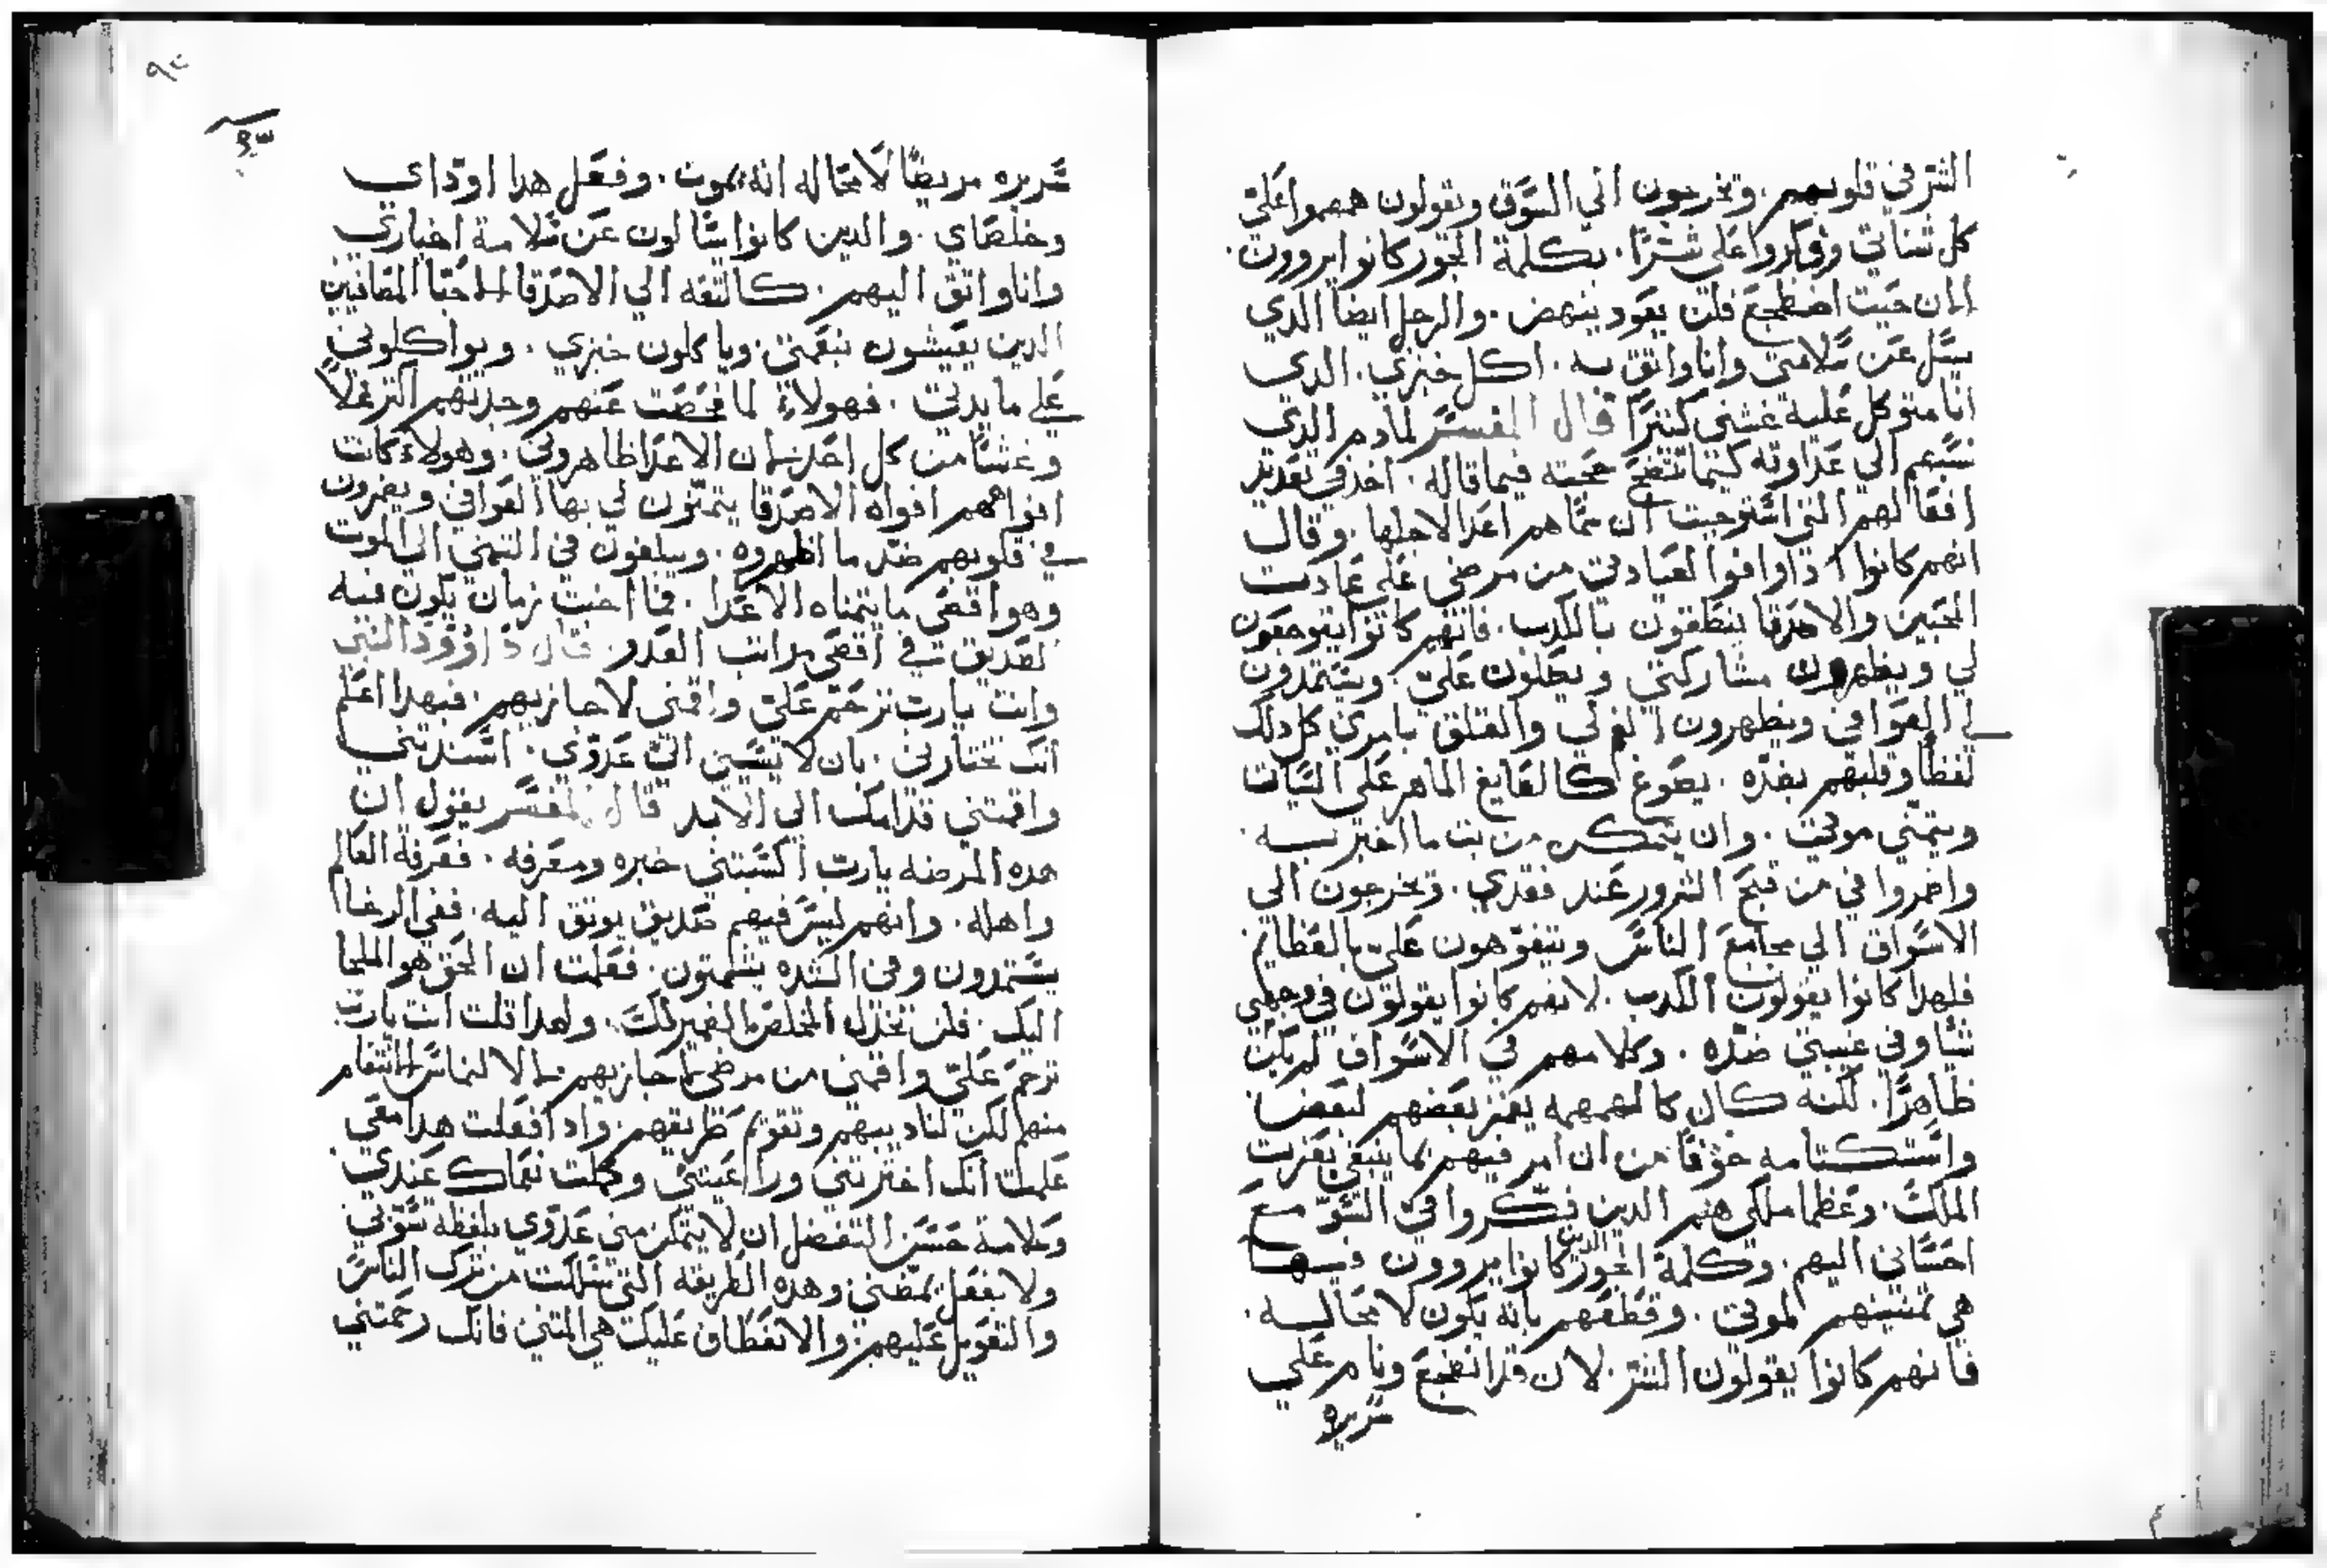 الشر في قلوبهم. وتخرجون الي السوق وتقولون همهموا علي
كل شناتي وفكروا علي شرًا. بكلمة الجور كانوا يروون.
الان حيت اضطجع فلن يعود ينهض. والرجل ايضًا الدي
يسل عن سلامتي وانا واثق به. اكل خبزي. الدي
انا متوكل عليه غشني كثيرًا قال المفسر لما دم الدي
نسبهم الي عداوته كيما تتضح حجته فيما قاله. اخد في تعديد
افعالهم التي استوجبت ان سماهم اعدا لاجلها. وقال
انهم كانوا ادا وافوا لعيادتي من مرضي علي عادت
المحبين والاصدقا ينطقون بالكدب. فانهم كانوا يتوجعون
لي ويظهرون مشاركتي ويصلون علي. ويستمدون
لي العوافي ويظهرون الغم لي والقلق بامري كل دلك
لفظًا وقلبهم بضده. يصوغ كالصايغ الماهر علي الثبات
ويتمني موتي. وان يتمكن من بت ما اختر به.
واضمروا في من قبح الشرور عند فقدي. وتخرجون الي
الاسواق الي مجامع الناس ويتفوهون علي بالعظايم
فلهدا كانوا يقولون الكدب. لانهم كانوا يقولون في وجهي
شيًا وفي غيبتي ضده. وكلامهم في الاسواق لم يكن
ظاهرًا. لكنه كان كالهمهمه يغمز بعضهم لبعض
واستكتامه خوفًا من ان امر فيهم بما ينبغي بعزت
الملك. وعظما ملكي هم الدين فكروا في السو مع
احساني اليهم. وكلمة الجور الدين كانوا يروون فيها
هي تمنيهم لموتي. وقطعهم بانه يكون لا محاله.
فانهم كانوا يقولون الشر. لان قد انضجع ونام علي
سريره
سريره مريضًا لا محاله انه يموت. وفعل هدا اوداي
وخلصاي. والدين كانوا يسالون عن سلامة اخباري
وانا واثق اليهم. كالثقه الي الاصدقا الاحبا المصافيين
الدين يعيشون بنعمتي وياكلون خبزي. ويواكلوني
علي مايدتي. فهولاء لما فحصت عنهم وجدتهم اكتر غلا
وغشًا من كل احد لان الاعدا ظاهروني. وهولاء كانت
افواههم افواه الاصدقا يتمنون لي بها العوافي ويضمرون
في قلوبهم ضد ما اظهروه. ويبلغون في التمني الي الموت
وهو اقصي ما يتمناه الاعدا. فما اخبت زمان يكون فيه
الصديق في اقصي مراتب العدو. قال داوود النبي
وانت يارب ترحم علي واقمني لاجازيهم. فبهدا اعلم
انك تختارني. بان لا يسي الي عدوي. اسندتني
واقمتني قدامك الي الابد قال المفسر يقول ان
هده المرضه يارب اكسبتني خبره ومعرفه. فعرفة العالم
واهله. وانهم ليس فيهم صديق يوثق اليه. ففي الرخا
يستمدون وفي الشده يشمتون. فعلمت ان الحق هو الملجا
اليك. فلن تخدل المخلص الضمير لك. ولهدا قلت انت يارب
ترحم علي واقمني من مرضي لاجازيهم لا لالتماس الانتقام
منهم لكن لتاديبهم وتقويم طريقهم. وادا فعلت هدا معي
علمت انك اخترتني وراعيتني وكملت نعماك عندي
وعلامة حسن التفضل ان لا يتمكن مني عدوي بلفظه تسوني
ولا بفعل يمضني وهده الطريقه التي سلكت من ترك الناس
والتعويل عليهم. والانعطاف عليك هي المتني فانك رحمتني